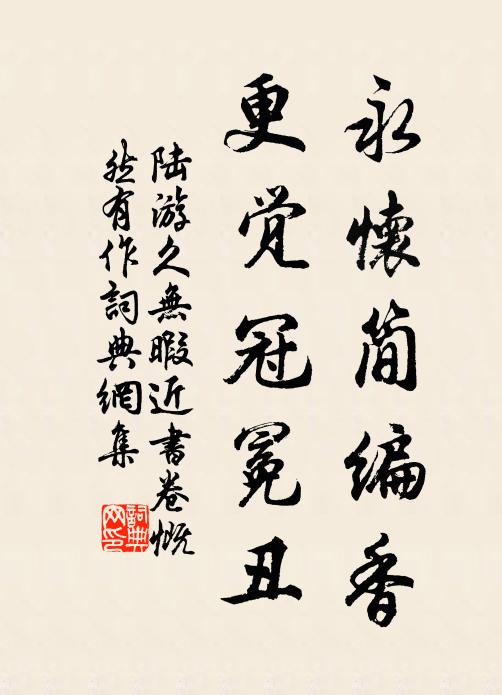 永懷简编香
更觉冠冕丑
陆游久無暇近書卷慨
然有作詞典網集
詞典網印